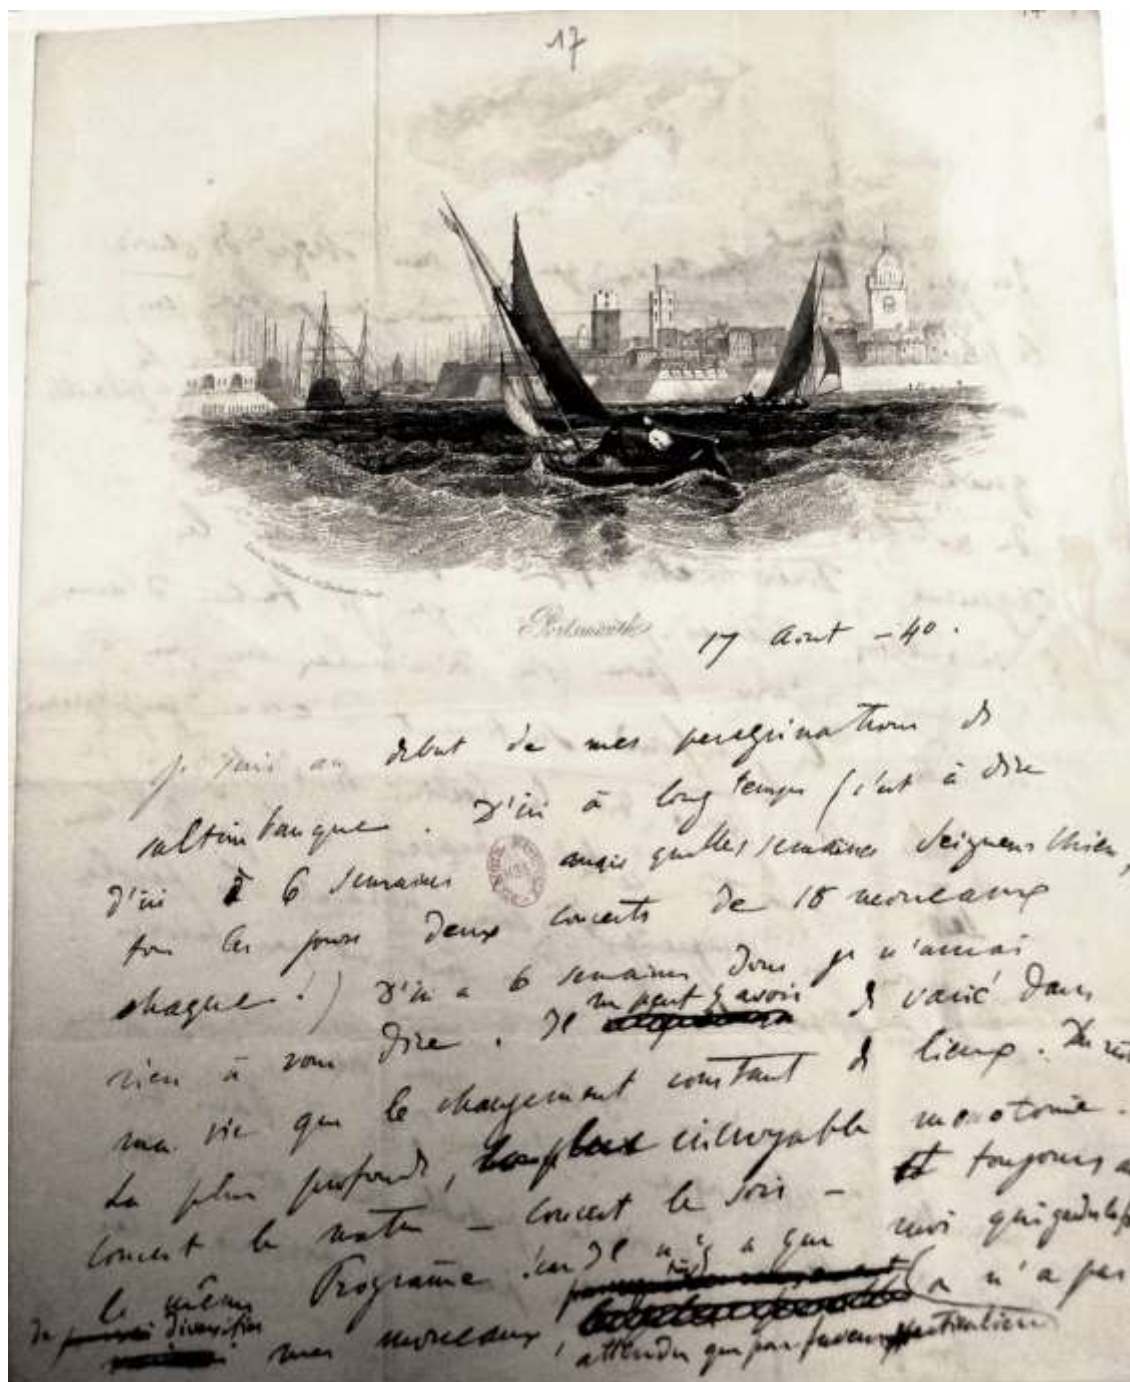 17
Portsmouth
17 Aout – 40.
Je suis au début de mes peregrinations de
saltimbanque. D'ici à long temps (c'est à dire
d'ici à 6 semaines quelles semaines Seigneur Dieu,
tous les jours deux concerts de 18 morceaux
chaque!) D'ici a 6 semaines donc je n'aurai
rien à vous dire. Il ne peut y avoir de varié dans
ma vie que le changement constant de lieux. Du reste
La plus profonde, incroyable monotonie.
Concert le matin – Concert le soir – Et toujours
le même Programme car il n'y a que moi qui
de diversifier mes morceaux, n'a pas
attendu que par faveur particulière